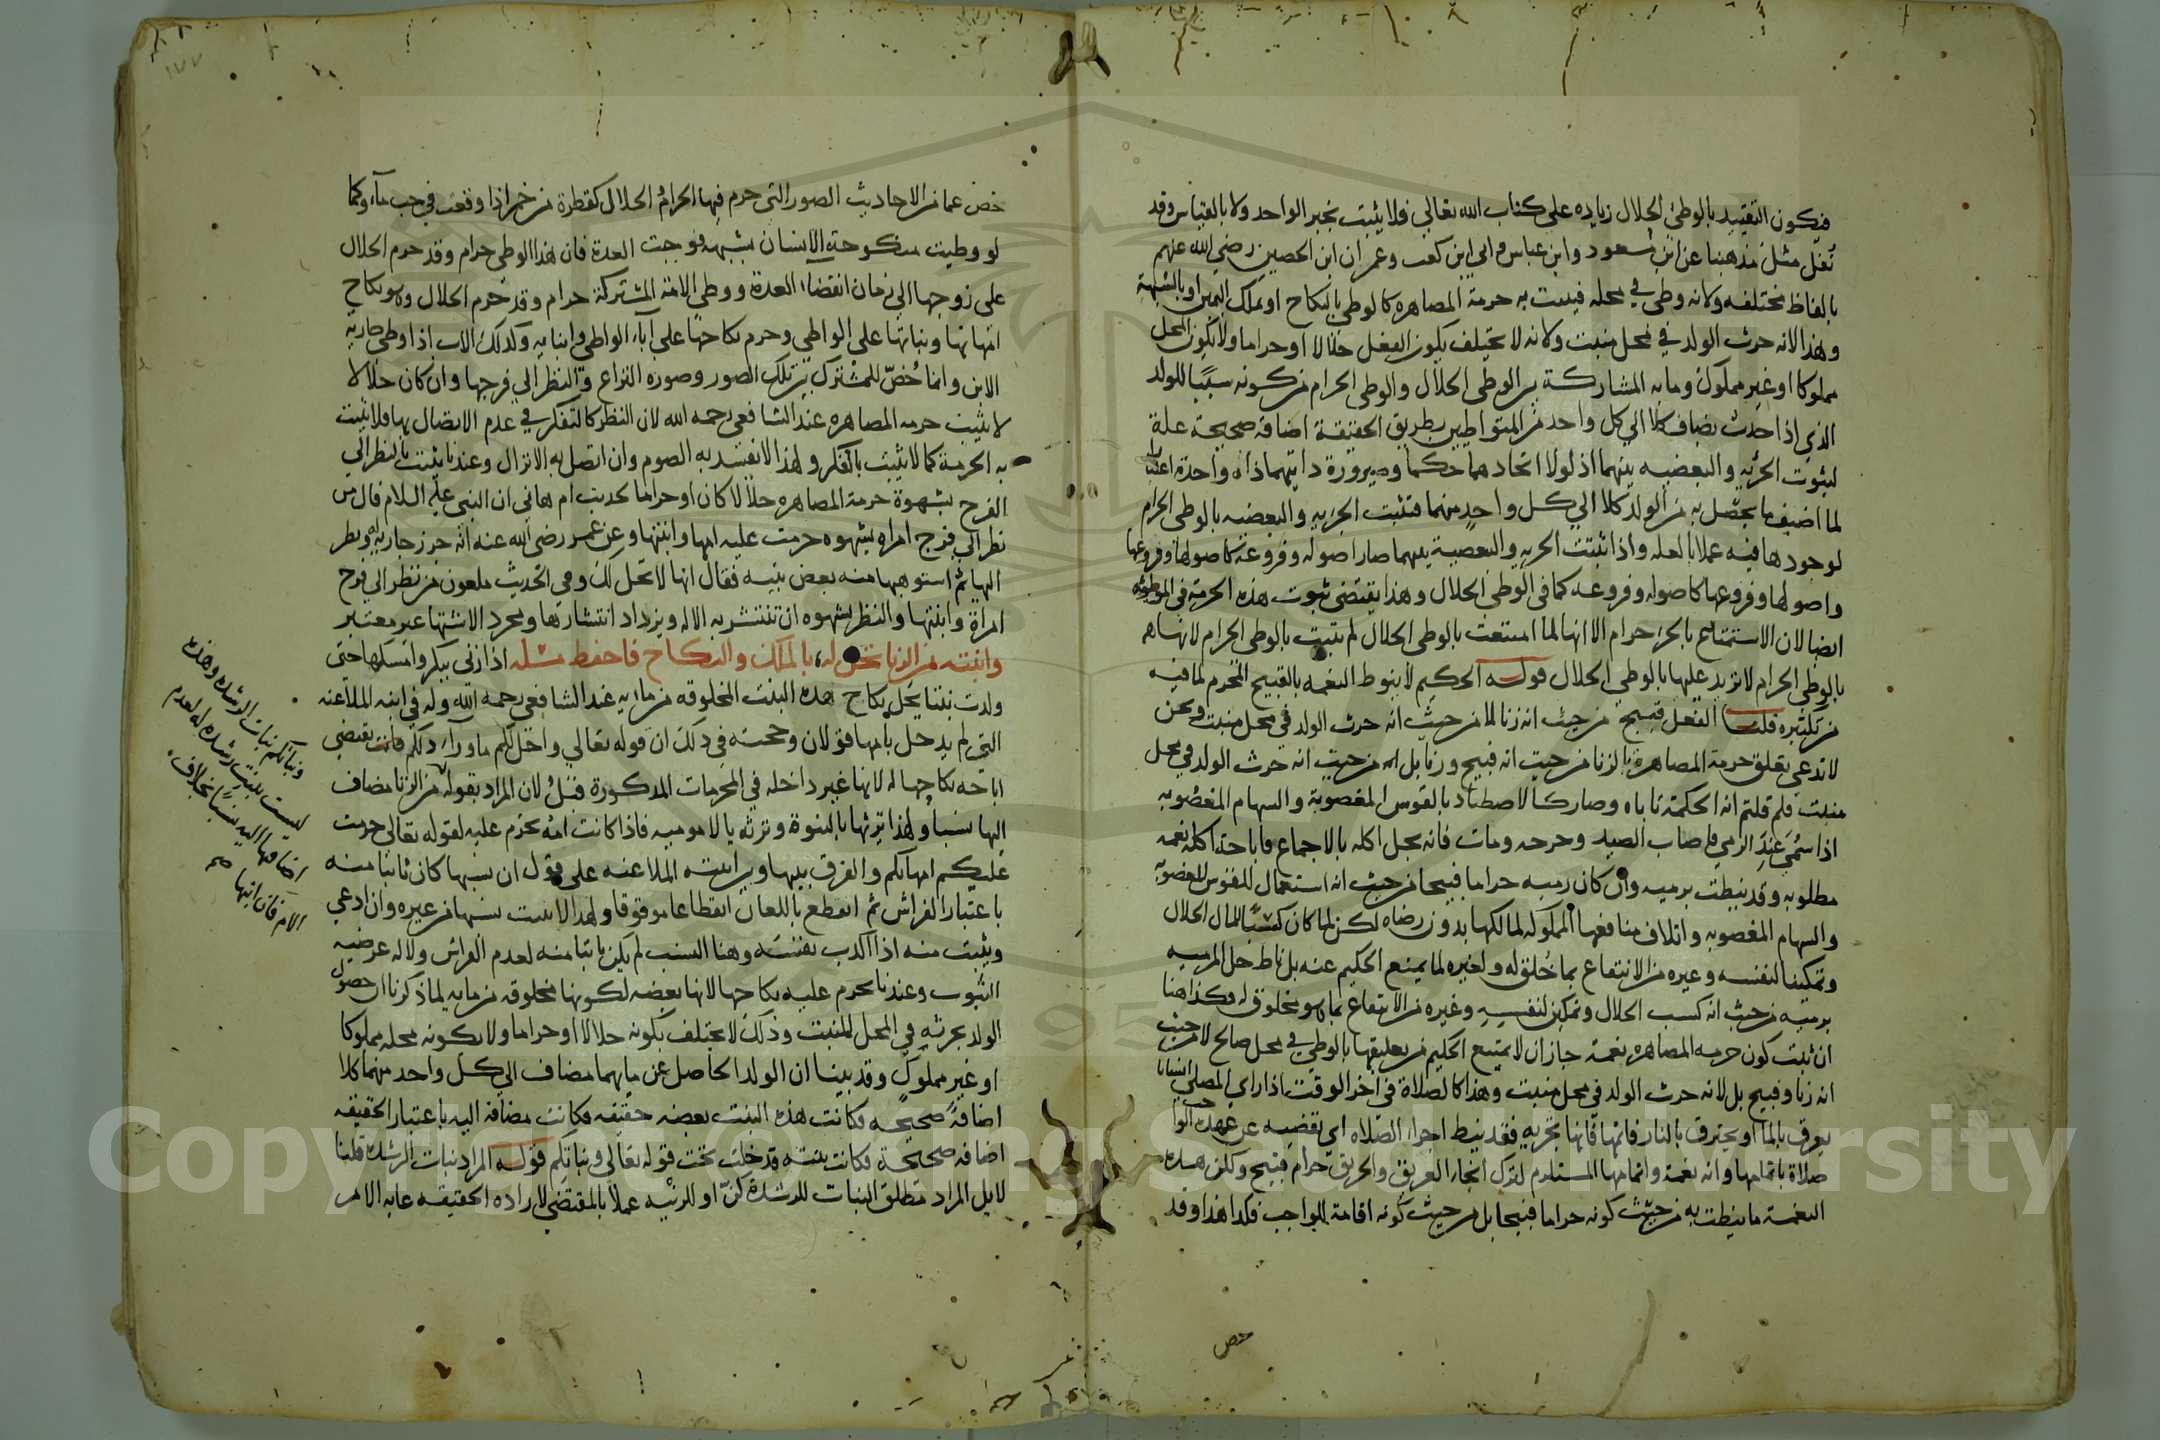 فيكون التقييد بالوطئ الحلال زياده على كتاب الله تعالى فلا يثبت بخبر الواحد ولا بالقياس وقد
نقل مثل مذهبنا عن ابن مسعود وابن عباس وابي ابن كعب وعمران ابن الحصين رضي الله عنهم
بالفاظ مختلفه ولانه وطى في محله فيثبت به حرمة المصاهره كالوطى بالنكاح او بملك اليمين او بالشبهة
وهذا لانه حرث الولد في محل منبت ولانه لا يختلف بكون الفعل حلالا او حراما ولا بكون المحل
مملوكا او غير مملوك وما به المشاركة بين الوطى الحلال والوطى الحرام من كونه سببا للولد
الذي اذا حدث يضاف كلا الى كل واحد من المتواطيين بطريق الحقيقة اضافة صحيحة علة
لثبوت الجزئيه والبعضيه بينهما اذ لولا اتحادهما حكما وصيرورة ذاتيهما ذات واحدة
لما اضيف ما يحصل به من الولد كلا الى كل واحد منهما فتثبت الجزئيه والبعضيه بالوطى الحرام
لوجودها فيه عملا بالعله واذا ثبتت الجزئيه والبعضية بينهما صار اصوله وفروعه كاصولها وفروعها
واصولها وفروعها كاصوله وفروعه كما في الوطى الحلال وهذا يقتضى ثبوت هذه الحرمة في الموطؤه
ايضا لان الاستمتاع بالجزء حرام الا انها لما امتنعت بالوطى الحلال لم تثبت بالوطى الحرام لانها
بالوطى الحرام لا تزيد عليها بالوطى الحلال قوله الحكيم لا ينوط النعمه بالقبيح المحرم لما فيه
من تكثيره قلنا الفعل قبيح من حيث انه زنا لا من حيث انه حرث الولد في محل منبت ونحن
لا ندعي تعلق حرمة المصاهرة بالزنا من حيث انه قبيح وزنا بل من حيث انه حرث الولد في محل
منبت فلم قلتم انه الحكمة تاباه وصار كالاصطياد بالقوس المغصوبة والسهام المغصوبه
اذا سمى عند الرمي فاصاب الصيد وجرحه ومات فانه يحل اكله بالاجماع واباحة اكله نعمه
مطلوبه وقد نيطت برميه وان كان رميه حراما قبيحا من حيث انه استعمال للقوس المغصوبة
والسهام المغصوبه واتلاف منافعها المملوكه لمالكها بدون رضاه لكن لما كان كسبا للمال الحلال
وتمكينا لنفسه وغيره من الانتفاع بما خلق له ولغيره لما يمنع الحكيم عنه بل ناط حل المرميه
برميه من حيث انه كسب الحلال وتمكين لنفسه وغيره من الانتفاع بما هو مخلوق له فكذا هنا
ان ثبت كون حرمه المصاهره نعمة جاز ان لا يمتنع الحكيم من تعليقها بالوطى في محل صالح لا من حيث
انه زنا وقبيح بل لانه حرث الولد في محل منبت وهذا كالصلاة في اخر الوقت اذا راى المصلى انسانا
يغرق بالماء او يحترق بالنار فاتمها فانها تجزيه فقد نيط اجزاء الصلاه اي تقضيه عن عهدة الوا
صلاة باتمامها وانه نعمة واتمامها المستلزم لترك انجاء الغريق والحريق حرام قبيح ولكن هذه
النعمة ما نيطت به من حيث كونه حراما قبيحا بل من حيث كونه اقامة للواجب فكذا هذا وقد
خص
خص عما من الاحاديث الصور التي حرم فيها الحرام الحلال كقطرة من خمر اذا وقعت في حب ماء وكما
لو وطيت منكوحة الانسان بشبهه فوجبت العدة فان هذا الوطى حرام وقد حرم الحلال
على زوجها الى زمان انقضاء العدة ووطى الامة المشتركة حرام وقد حرم الحلال وهو نكاح
امهاتها وبناتها على الواطى وحرم نكاحها على آباء الواطى وابنايه وكذلك الاب اذا وطى جارية
الابن وانما خص للمشترك بين تلك الصور وصوره النزاع والنظر الى فرجها وان كان حلالا
لا يثبت حرمه المصاهره عند الشافعى رحمه الله لان النظر كالتفكر في عدم الاتصال بها فلا يثبت
به الحرمة كما لا يثبت بالفكر ولهذا لا يفسد به الصوم وان اتصل به الانزال وعندنا يثبت بالنظر الى
الفرج بشهوة حرمة المصاهره حلالا كان او حراما لحديث ام هانى ان النبى عليه السلام قال من
نظر الى فرج امراه بشهوه حرمت عليه امها وابنتها وعن عمر رضى الله عنه انه جرد جاريه ونظر
اليها ثم استوهبها منه بعض بنيه فقال انها لا تحل لك وفى الحديث ملعون من نظر الى فرج
امراة وابنتها والنظر بشهوه ان تنتشر به الاله ويزداد انتشارها ومجرد الاشتها غير معتبر
وابنته من الزنا تحل له، بالملك والنكاح فاحفظ مثله اذا زنى ببكر وامسكها حتى
ولدت بنتا يحل نكاح هذه البنت المخلوقه من مايه عند الشافعى رحمه الله وله في ابنه الملاعنه
التى لم يدخل بامها قولان وحجته في ذلك ان قوله تعالى واحل لكم ما وراء ذلكم يقتضي
اباحه نكاحها له لانها غير داخله في المحرمات المذكورة قبل لان المراد بقوله من الزنا مضاف
اليها نسبا ولهذا يرثها بالبنوة وترثه بالامومية فاذا كانت امه تحرم عليه لقوله تعالى حرمت
عليكم امهاتكم والفرق بينها وبين ابنة الملاعنه على قول ان نسبها كان ثابتا منه
باعتبار الفراش ثم انقطع باللعان انقطاعا موقوفا ولهذا لا يثبت نسبها من غيره وان ادعى
ويثبت منه اذا اكذب نفسه وهنا النسب لم يكن ثابتا منه لعدم الفراش ولا له عرضيه
الثبوت وعندنا يحرم عليه نكاحها لانها بعضه لكونها مخلوقه من مايه لما ذكرنا ان حصول
الولد بحرثه في المحل المنبت وذلك لا يختلف بكونه حلالا او حراما ولا بكونه محله مملوكا
او غير مملوك وقد بينا ان الولد الحاصل عن مايهما مضاف الى كل واحد منهما كلا
اضافة صحيحه فكانت هذه البنت بعضه حقيقه فكانت مضافة اليه باعتبار الحقيقه
اضافه صحيحة فكانت بنته قد خلت تحت قوله تعالى وبناتكم قوله المراد بنات الرشده قلنا
لا بل المراد مطلق البنات للرشدة كن او للزنيه عملا بالمقتضي لارادة الحقيقه غايه الامر
وبناتكم بنات الرشده وهذه
ليست بنت رشده له لعدم
اضافها اليه نسبا بخلاف
الام فان ابنها